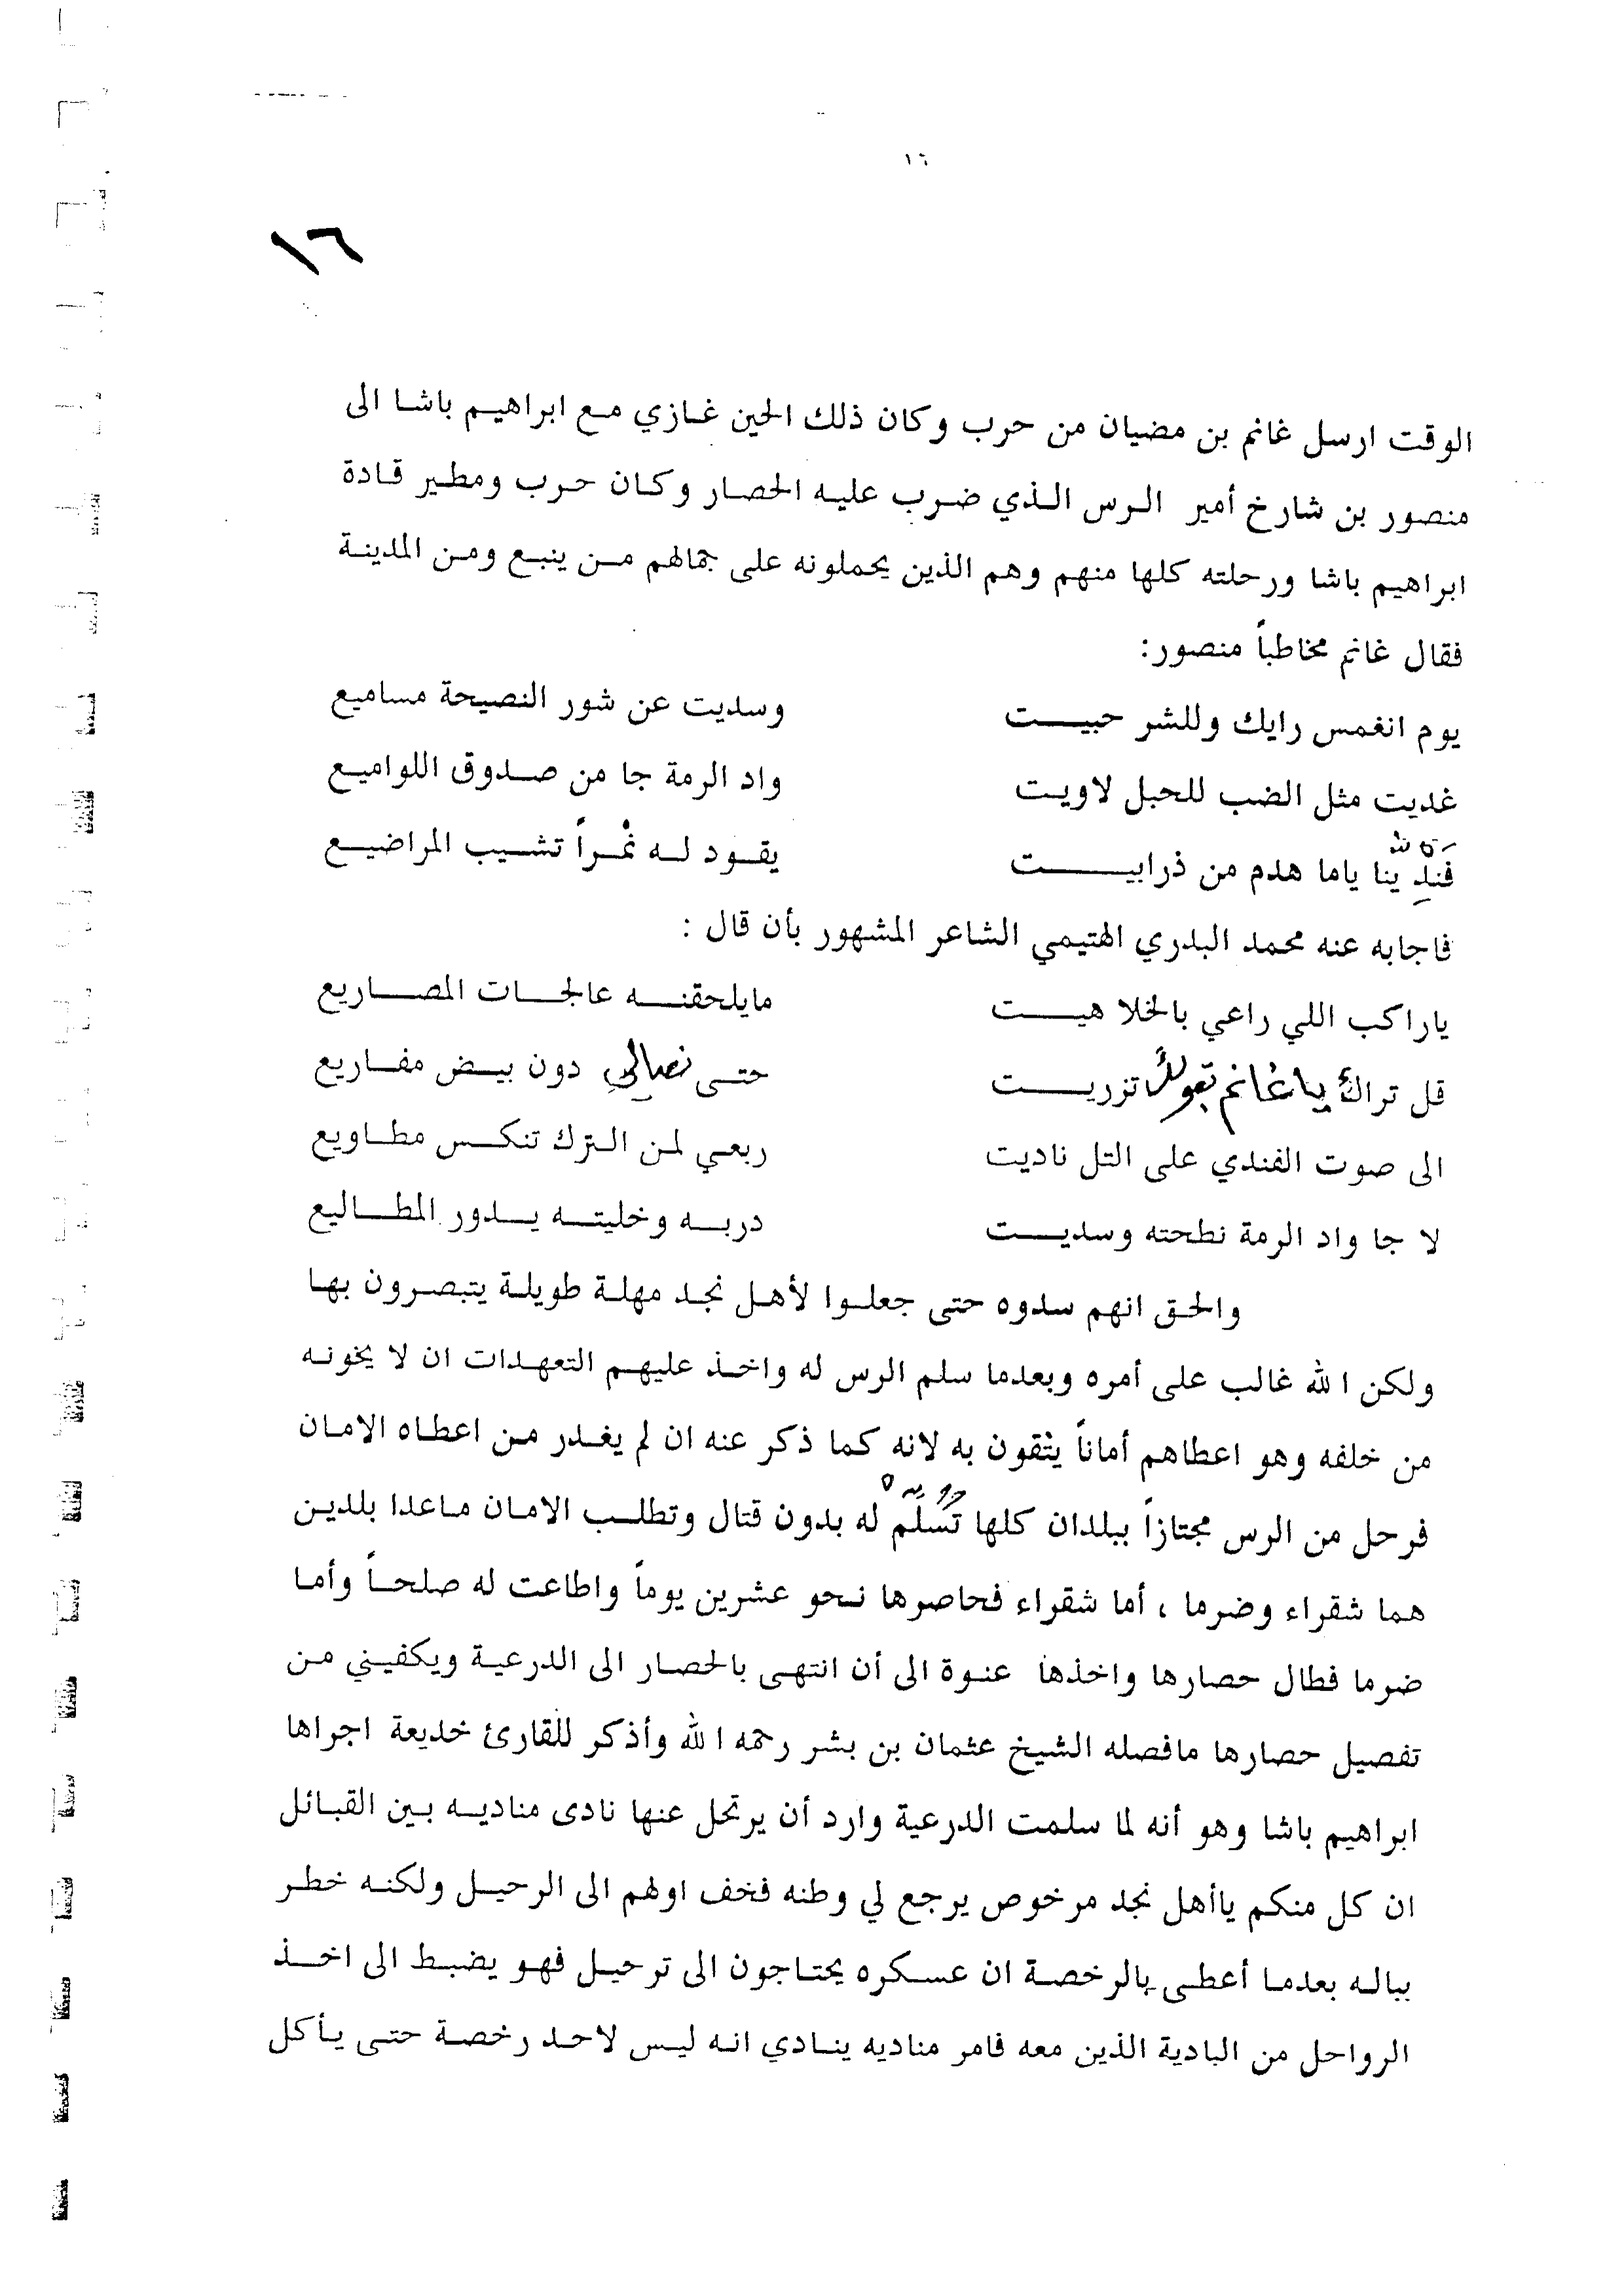 ١٦
١٦
الوقت ارسل غانم بن مضيان من حرب وكان ذلك الحين غازي مع ابراهيم باشا الى
منصور بن شارخ أمير الرس الذي ضرب عليه الحصار وكان حرب ومطير قادة
ابراهيم باشا ورحلته كلها منهم وهم الذين يحملونه على جمالهم من ينبع ومن المدينة
فقال غانم مخاطباً منصور:
يوم انغمس رايك وللشر حبيت وسديت عن شور النصيحة مساميع
غديت مثل الضب للحبل لاويت واد الرمة جا من صدوق اللواميع
فند ينا ياما هدم من ذرابيت يقود له نمْراً تشيب المراضيع
فاجابه عنه محمد البدري الهتيمي الشاعر المشهور بأن قال :
ياراكب اللي راعي بالخلا هيت مايلحقنه عالجات المصاريع
قل تراك يا غانم تزريت حتى دون بيض مفاريع
الى صوت الفندي على التل ناديت ربعي لمن الترك تنكس مطاويع
لا جا واد الرمة نطحته وسديت دربه وخليته يدور المطاليع
والحق انهم سدوه حتى جعلوا لأهل نجد مهلة طويلة يتبصرون بها
ولكن الله غالب على أمره وبعدما سلم الرس له واخذ عليهم التعهدات ان لا يخونه
من خلفه وهو اعطاهم أماناً يثقون به لانه كما ذكر عنه ان لم يغدر من اعطاه الامان
فرحل من الرس مجتازاً ببلدان كلها تُسلّم له بدون قتال وتطلب الامان ماعدا بلدين
هما شقراء وضرما ، أما شقراء فحاصرها نحو عشرين يوماً واطاعت له صلحاً وأما
ضرما فطال حصارها واخذها عنوة الى أن انتهى بالحصار الى الدرعية ويكفيني من
تفصيل حصارها مافصله الشيخ عثمان بن بشر رحمه الله وأذكر للقارئ خديعة اجراها
ابراهيم باشا وهو أنه لما سلمت الدرعية وارد أن يرتحل عنها نادى مناديه بين القبائل
ان كل منكم ياأهل نجد مرخوص يرجع لي وطنه فخف اولهم الى الرحيل ولكنه خطر
بباله بعدما أعطى بالرخصة ان عسكره يحتاجون الى ترحيل فهو يضبط الى اخذ
الرواحل من البادية الذين معه فامر مناديه ينادي انه ليس لاحد رخصة حتى يأكل